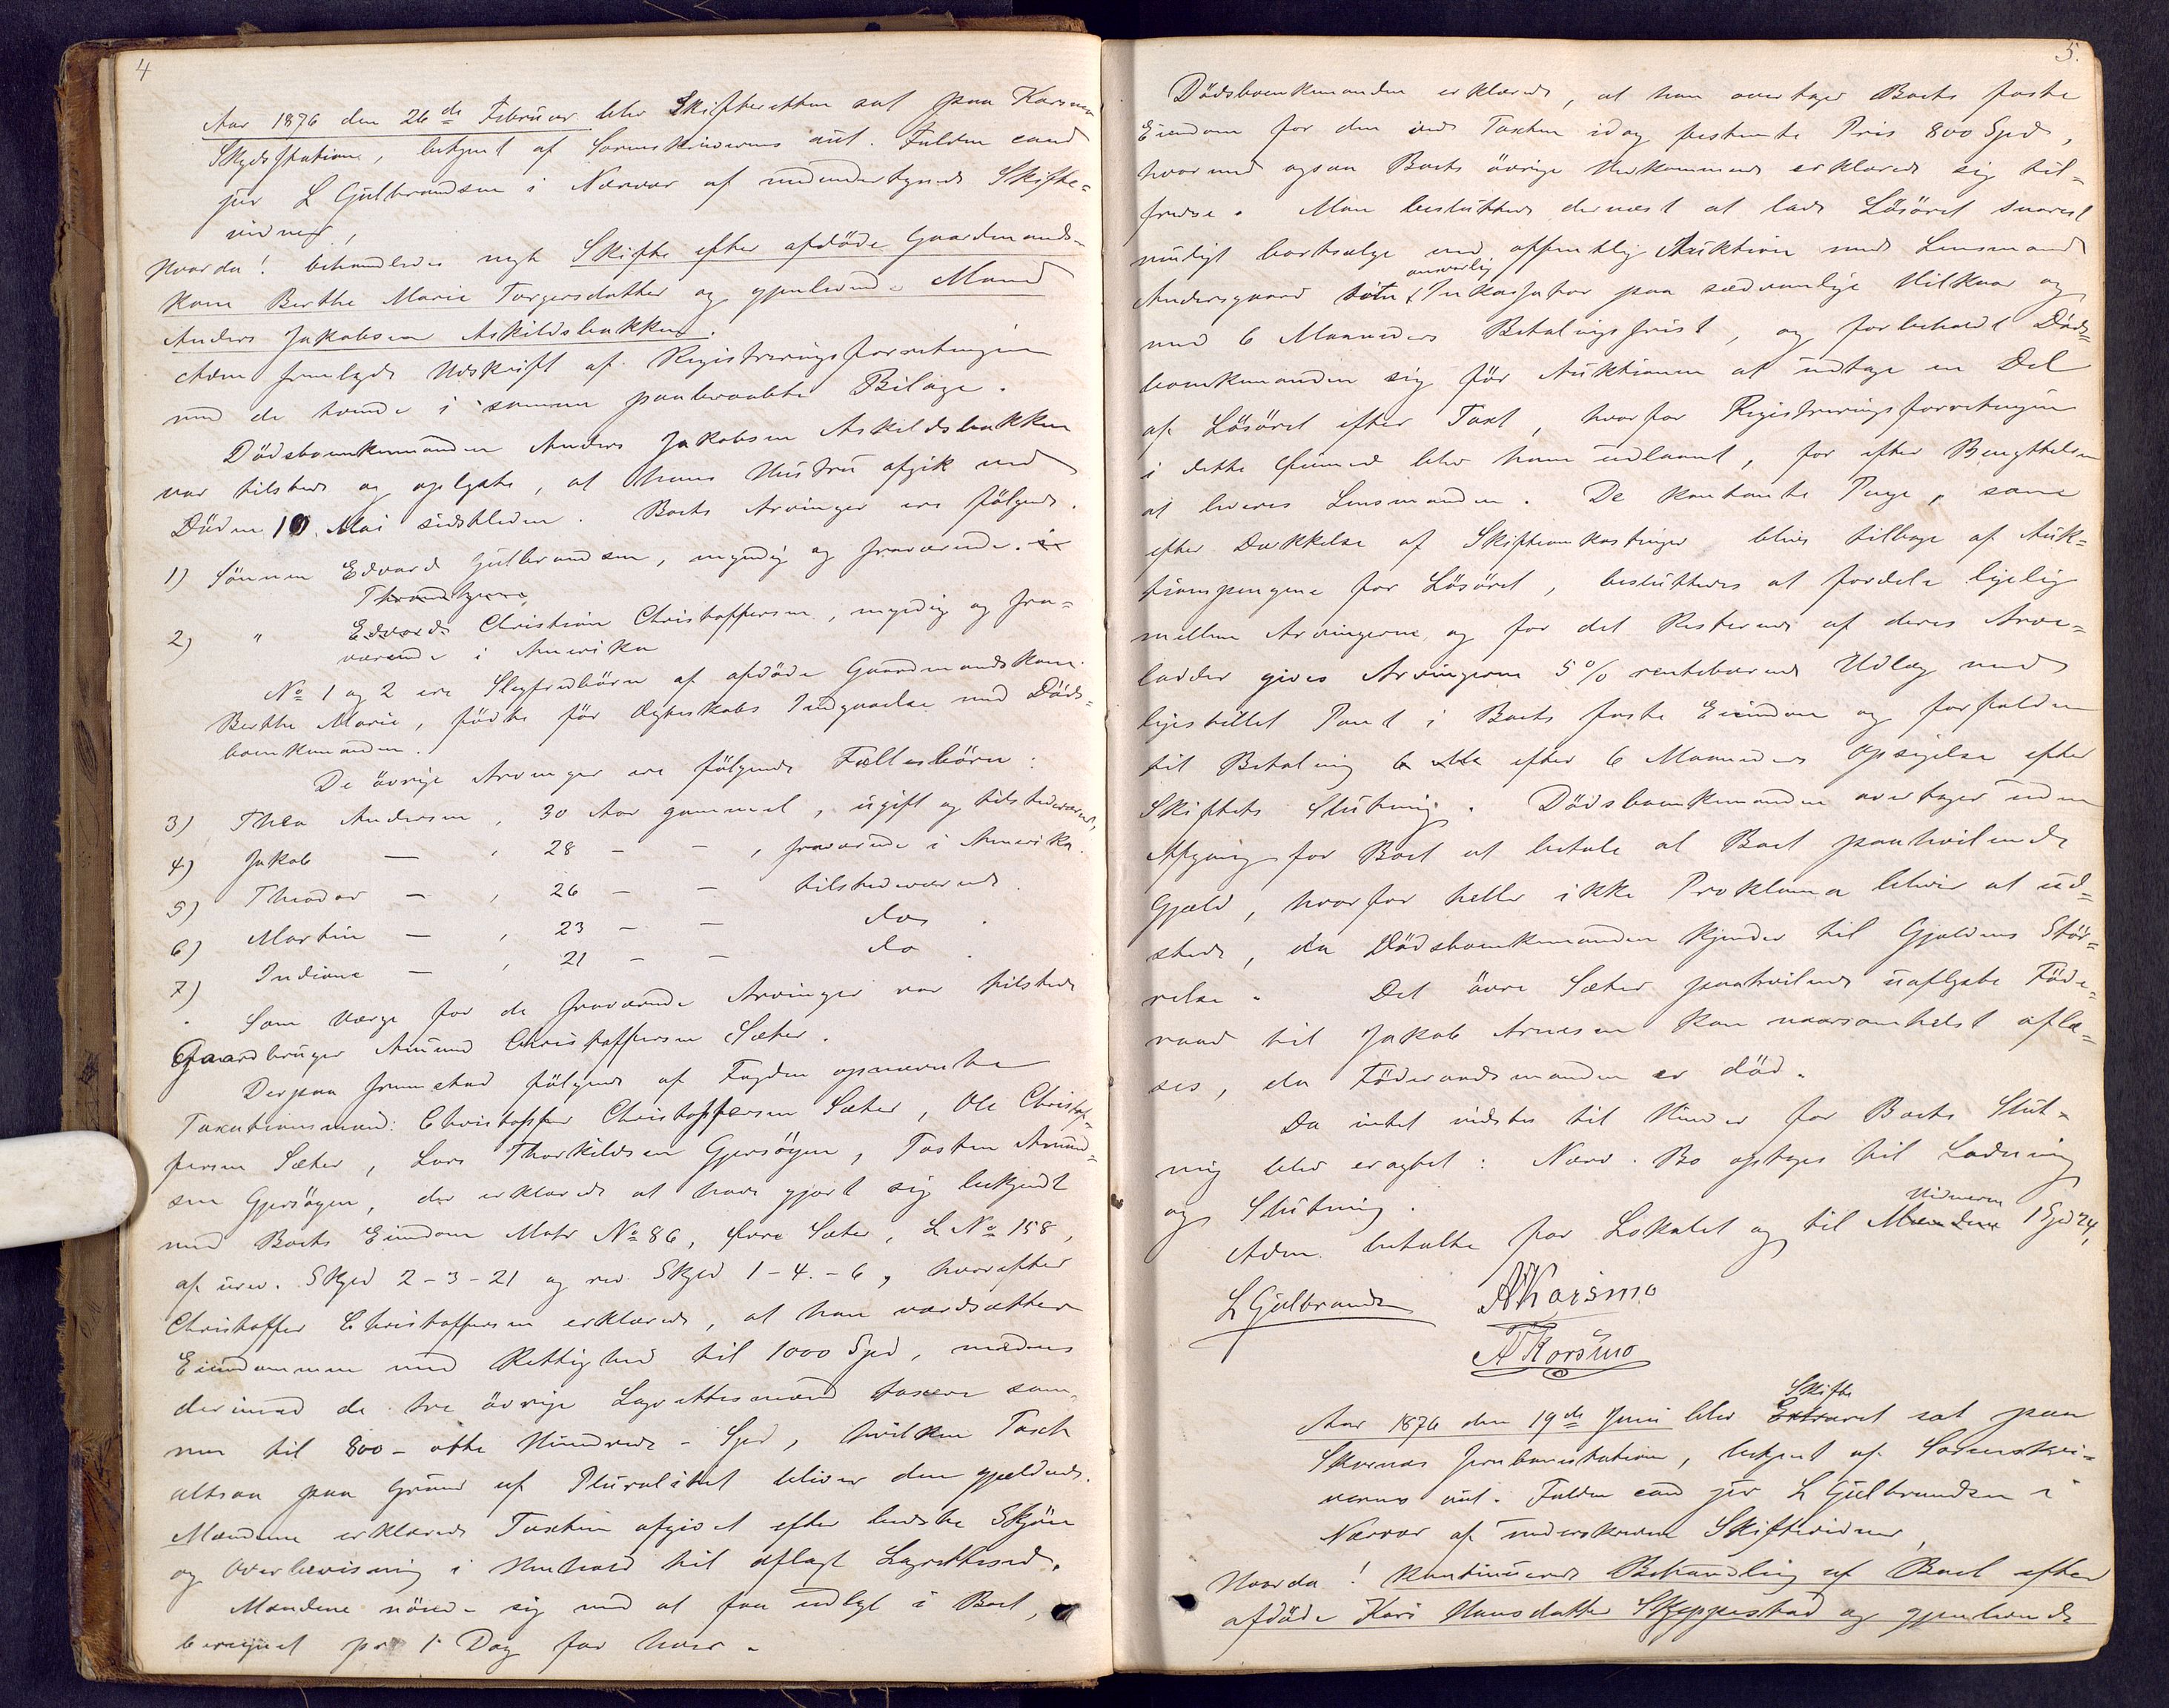 4
Aar 1876 den 26de Februar blev Skifteretten sat paa Korsmo
Skydsstation, betjent af Sorenskriverens aut. Fuldm cand
jur L Gulbrandsen i Nærvær af medundertegnede Skifte=
vidner,
Hvorda! behandledes nyt Skifte efter afdøde Gaardmands-
kone Berthe Marie Torgersdatter og gjenlevende Mand
Anders Jakobsen Askildsbakken.
Adm fremlagde Udskrift af Registreringsforretningen
med de tvende i samme paaberaabte Bilage.
Dødsboenkemanden Anders Jakobsen Askildsbakken
var tilstede og oplyste, at hans Hustru afgik ved
Døden 10. Mai sidstleden. Boets Arvinger ere følgende.
1) Sønnen Edvard Gulbrandsen, myndig og fraværende. i
Throndhjem,
2) " Edvard Christian Christoffersen, myndig og fra=
værende i Amerika
No 1 og 2 ere Slegfredbørn af afdøde Gaardmandskone
Berthe Marie, fødte før Ægteskabs Indgaaelse med Døds=
boenkemanden.
De øvrige Arvinger ere følgende Fællesbørn:
3) Thea Andersen, 30 Aar gammel, ugift og tilstedeværende,
4) Jakob — , 28 - - , fraværende i Amerika.
5) Theodor — , 26 - - tilstedeværende.
6) Martin — , 23 - - do.
7) Indiane — , 21 - - do.
Som Værge for de fraværende Arvinger var tilstede
Gaardbruger Amund Christoffersen Sæter.
Derpaa fremstod følgende af Fogden opnævnte
Taxationsmænd: Christoffer Christoffersen Sæter, Ole Christof=
fersen Sæter, Lars Thorkildsen Gjersøyen, Tosten Amund=
sen Gjersøyen, der erklærede at have gjort sig bekjendt
med Boets Eiendom Matr No 86, øvre Sæter, L No 158,
af urev. Skyld 2-3-21 og rev Skyld 1-4-6, hvorefter
Christoffer Christoffersen erklærede, at han værdsætter
Eiendommen med Rettighed til 1000 Spd, medens
derimod de tre øvrige Lagrettesmænd taxere sam=
me til 800 - otte Hundrede - Spd, hvilken Taxt
altsaa paa Grund af Pluralitet bliver den gjældende.
Mændene erklærede Taxten afgivet efter bedste Skjøn
og Overbevisning i Henhold til aflagt Lagrettesed.
Mændene nøiede sig med at faa udlagt i Boet,
beregnet pr 1 Dag for hver.
5.
Dødsboenkemanden erklærede, at han overtager Boets faste
Eiendom for den ved Taxten idag bestemte Pris 800 Spd,
hvormed ogsaa Boets øvrige Vedkommende erklærede sig til=
fredse. Man besluttede dernæst at lade Løsøret snarest
muligt bortsælge ved offentlig Auktion med Lensmand
ansvarlig
Andersgaard som Inkassator paa sædvanlige Vilkaar og
med 6 Maaneders Betalingsfrist, og forbeholdt Døds=
boenkemanden sig før Auktionen at udtage en Del
af Løsøret efter Taxt, hvorfor Registreringsforretningen
i dette Øiemed blev ham udlaant, for efter Benyttelsen
at leveres Lensmanden. De kontante Penge, som
efter Dækkelse af Skifteomkostninger blive tilbage af Auk=
tionspengene for Løsøret, besluttedes at fordele ligelig
mellem Arvingerne, og for det Resterende af deres Arve=
lodder gives Arvingerne 5% rentebærende Udlæg med
ligestillet Pant i Boets faste Eiendom og forfalden
til Betaling efter 6 Maaneders Opsigelse efter
Skiftets Slutning. Dødsboenkemanden overtager uden
Afgang for Boet at betale al Boet paahvilende
Gjæld, hvorfor heller ikke Proklama bliver at ud=
stede, da Dødsboenkemanden kjender til Gjældens Stør=
relse. Det øvre Sæter paahvilende uaflyste Føde=
raad til Jakob Arnesen kan naarsomhelst aflæ=
ses, da Føderaadsmanden er død.
Da intet vidstes til Hinder for Boets Slut=
ning blev eragtet: Nærv. Bo optages til Lodning
og Slutning.
Vidnerne
Adm. betalte for Lokalet og til Mændene 1 Spd 24,
L Gulbrandsen AKorsmo
A Korsmo
Skifte
Aar 1876 den 19de Juni blev Extraret sat paa
Skarnæs Jernbanestation, betjent af Sorenskri=
verens aut. Fuldm cand jur L Gulbrandsen i
Nærvær af underskrevne Skiftevidner,
Hvorda! kontinueredes Behandling af Boet efter
afdøde Kari Hansdatter Skyppestad og gjenlevende